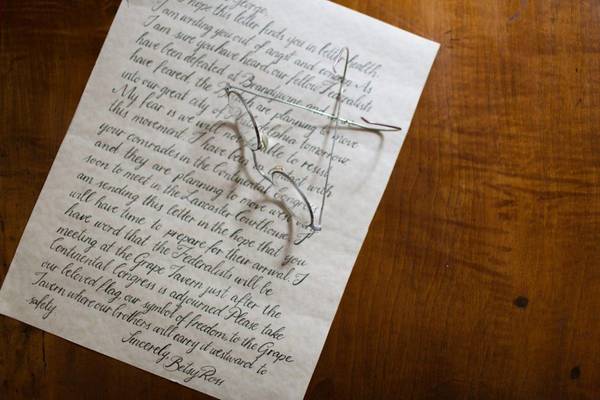 George,
I hope this letter finds you in better health.
I am writing you out of angst and As
I am sure you have heard, our fellow Federalists
have been defeated at Brandywine and
have feared, the are planning to move
into our great city tomorrow.
My fear is we to resist
this movement. I have been in with
your comrades in the Continental Congress
and they are planning to move
soon to meet in the Lancaster Courthouse. I
am sending this letter in the hope that you
will have time to prepare for their arrival. I
have word that the Federalists will be
meeting at the Grape Tavern just after the
Continental Congress is adjourned. Please take
our beloved flag, our symbol of freedom, to the Grape
Tavern where our brothers will carry it westward to
safety
Sincerely, Betsy Ross